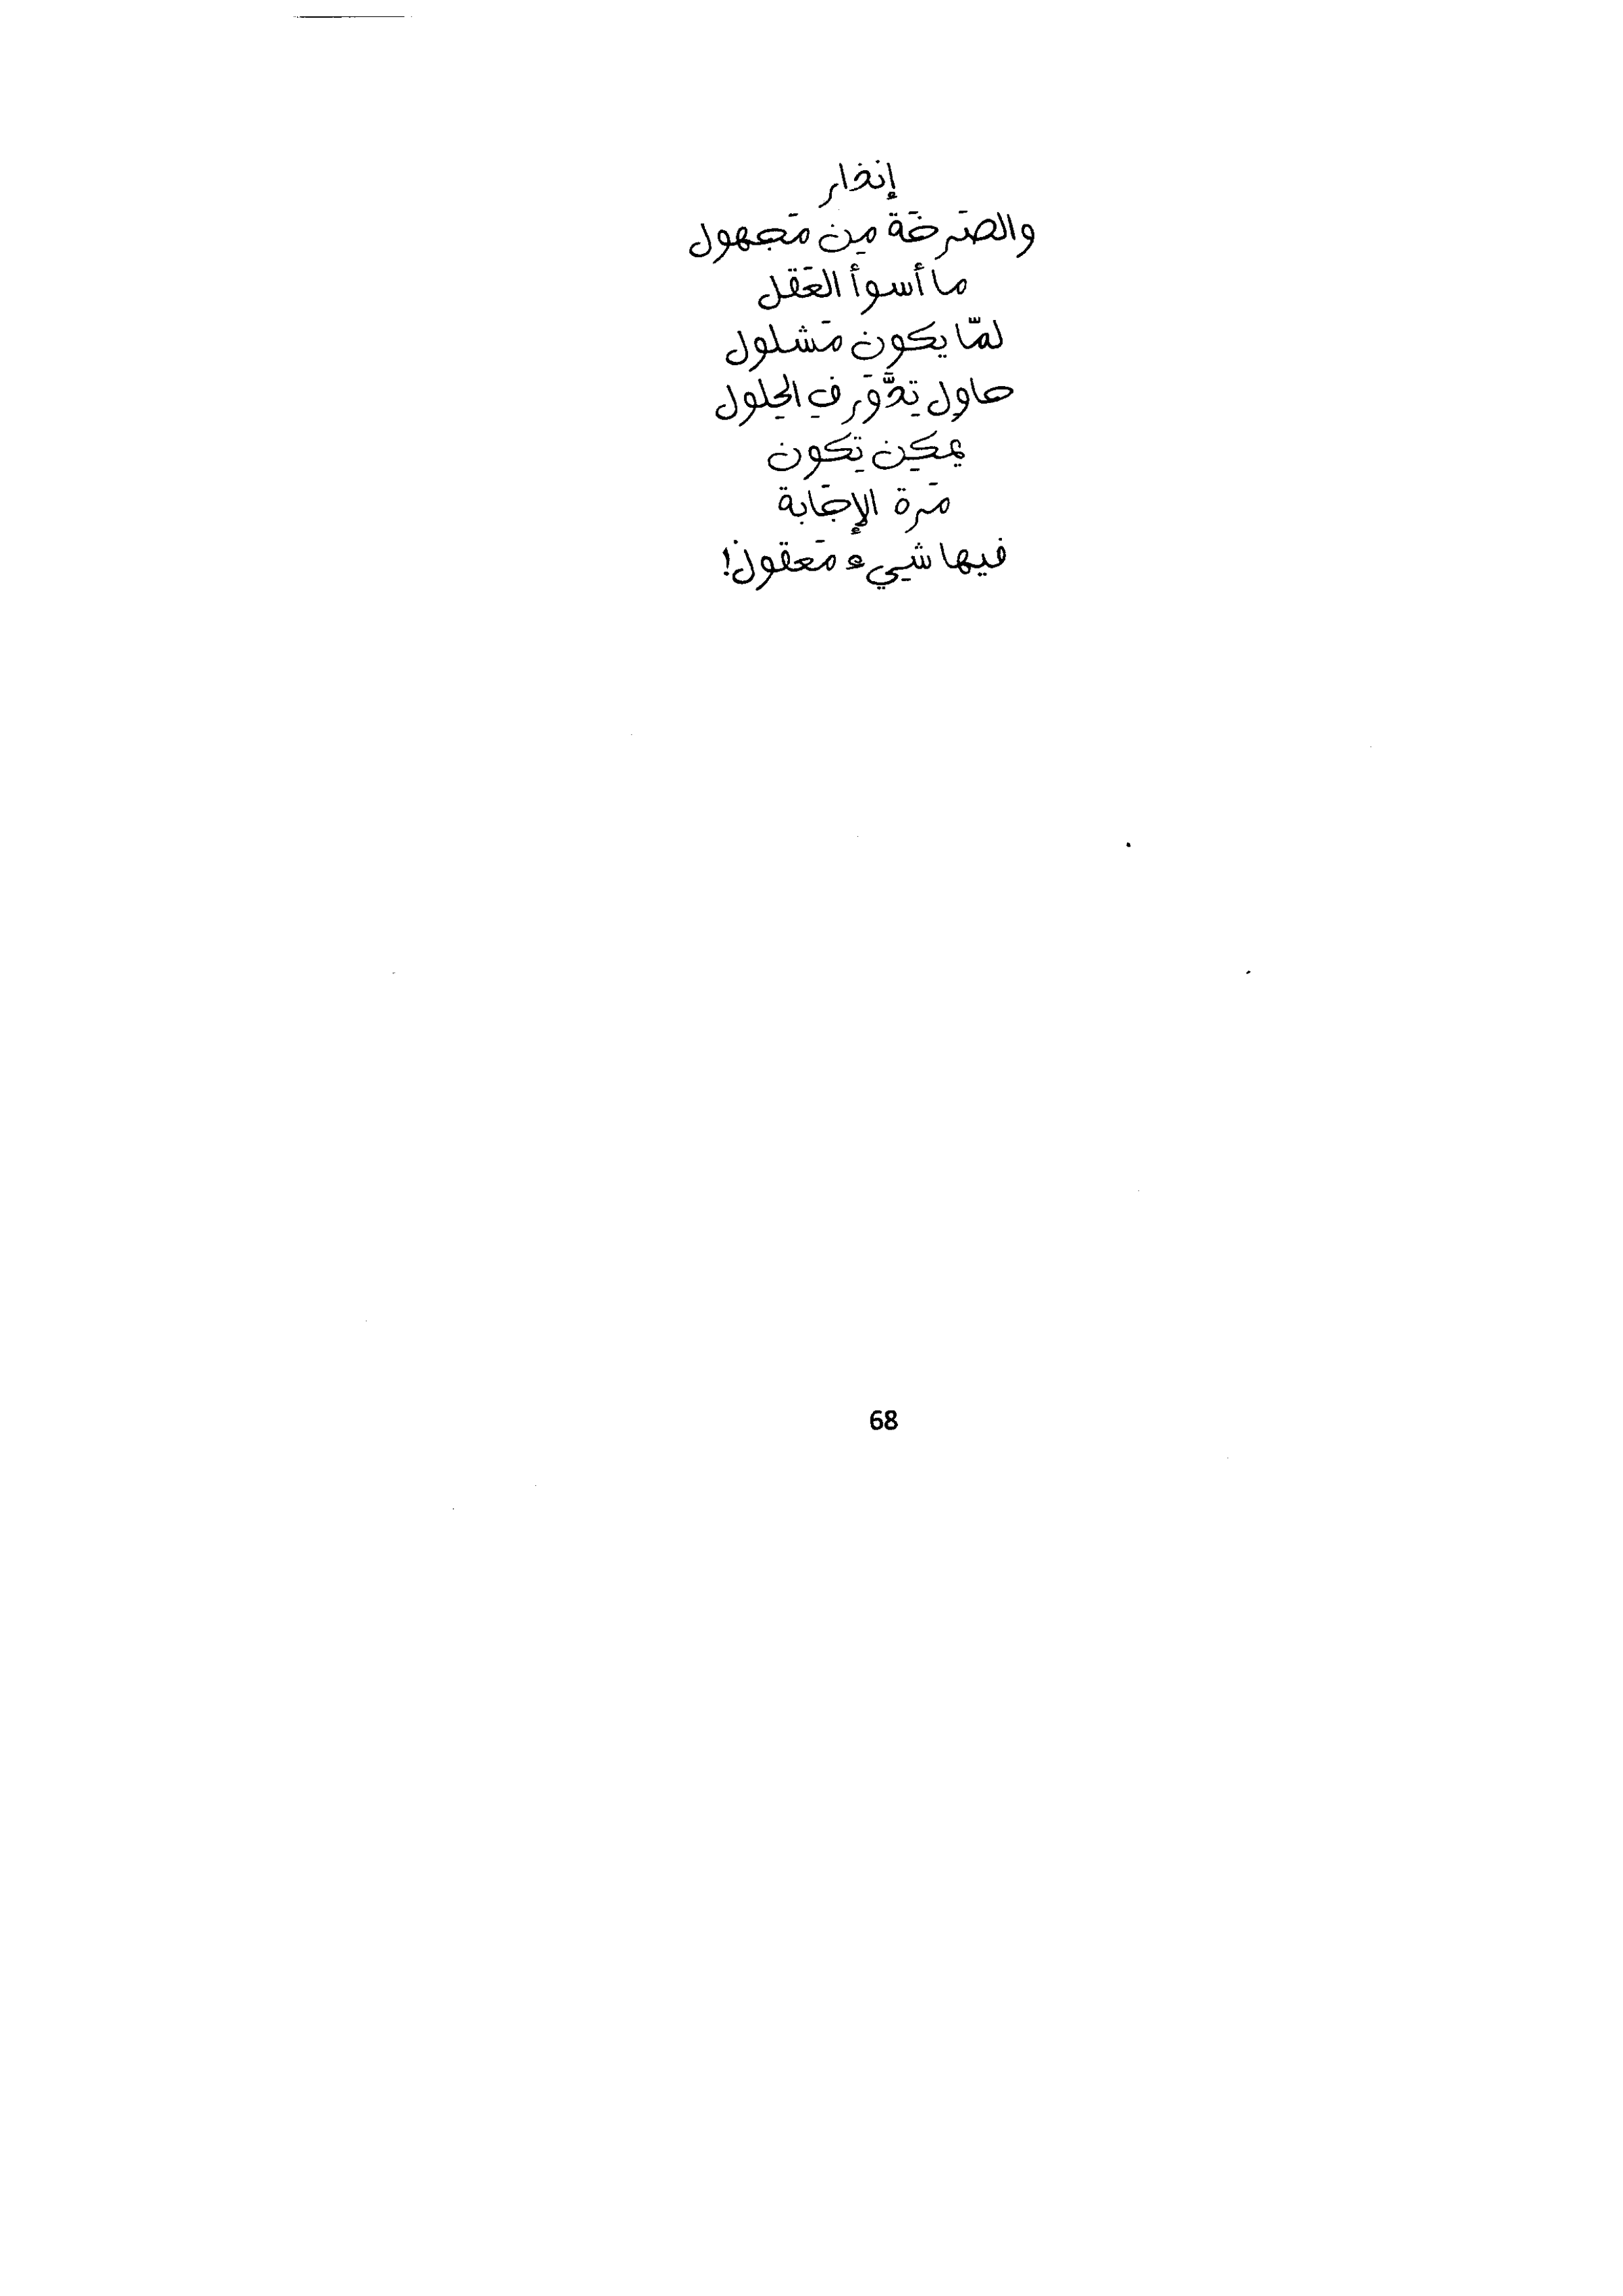 إنذار
والصَرخَة مِن مَجهول
ما أسوأ العَقل
لمّا يكون مَشلول
حاوِل تِدَّوَر فِ الحِلول
يمكِن تِكون
مَرة الإجَابة
فيها شيِء مَعقول!
68